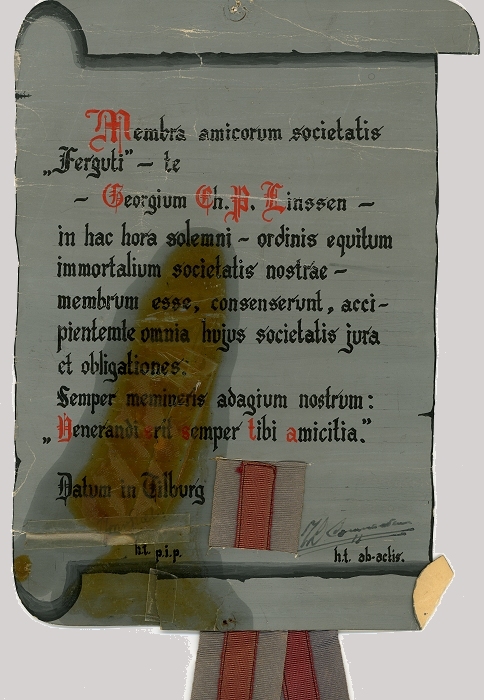 Membra amicorum societatis
„Ferguti" – te
– Georgium Ch. P. Linssen –
in hac hora solemni – ordinis equitum
immortalium societatis nostrae –
membrum esse, consenserunt, acci-
pientem te omnia hujus societatis jura
et obligationes.
Semper memineris adagium nostrum:
„Venerandi erit semper tibi amicitia."
Datum in Tilburg
h.t. p.i.p.
h.t. ab-actis.